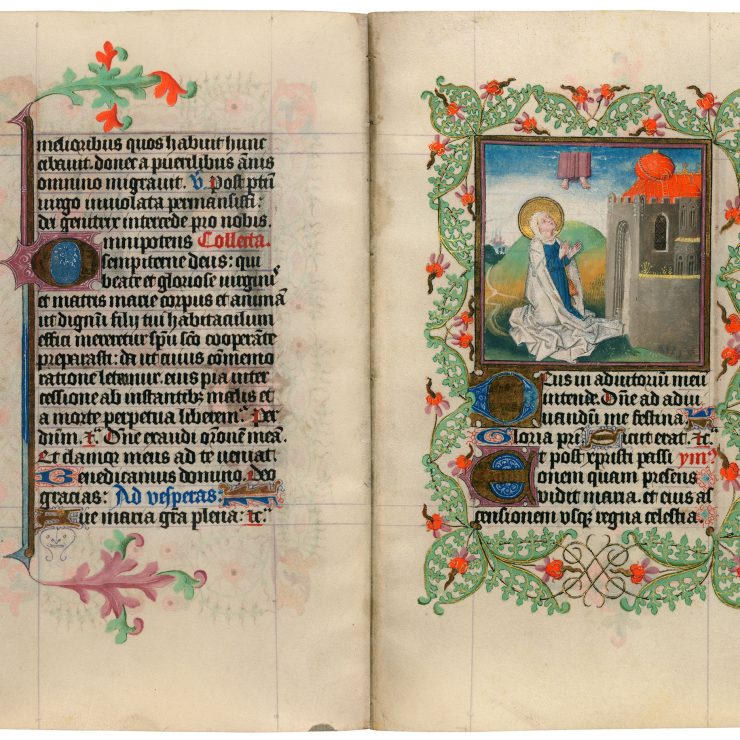 melioribus quos habuit hunc
cibavit. donec a puerilibus ānis
omnino migravit. V̄. Post ptū
virgo inviolata permansisti:
dei genitrix intercede pro nobis.
Omnipotens Collecta.
sempiterne deus: qui
beate et gloriose virgīs
et matris marie corpus et animā
ut dignū filii tui habitaculum
effici mereretur spū sc̄o cooperāte
preparasti: da ut cuius cōmemo
ratione letamur. eius pia inter
cessione ab instantibꝫ malis et
a morte perpetua liberem̄. Per
dn̄um. ⁊c̄. Dn̄e exaudi or̄onē meā.
Et clamor meus ad te veniat.
Benedicamus domino. Deo
gracias: Ad vesperas:
Ave maria gr̄a plena: ⁊c̄.
Deus in adiutoriū meū
intende. Dn̄e ad adiu
vandū me festina.
Gloria pr̄i Sicut erat. ⁊c.
Et post xpristi passi ym̄
onem quam presens
vidit maria. et eius as
censionem usqꝫ regna celestia.